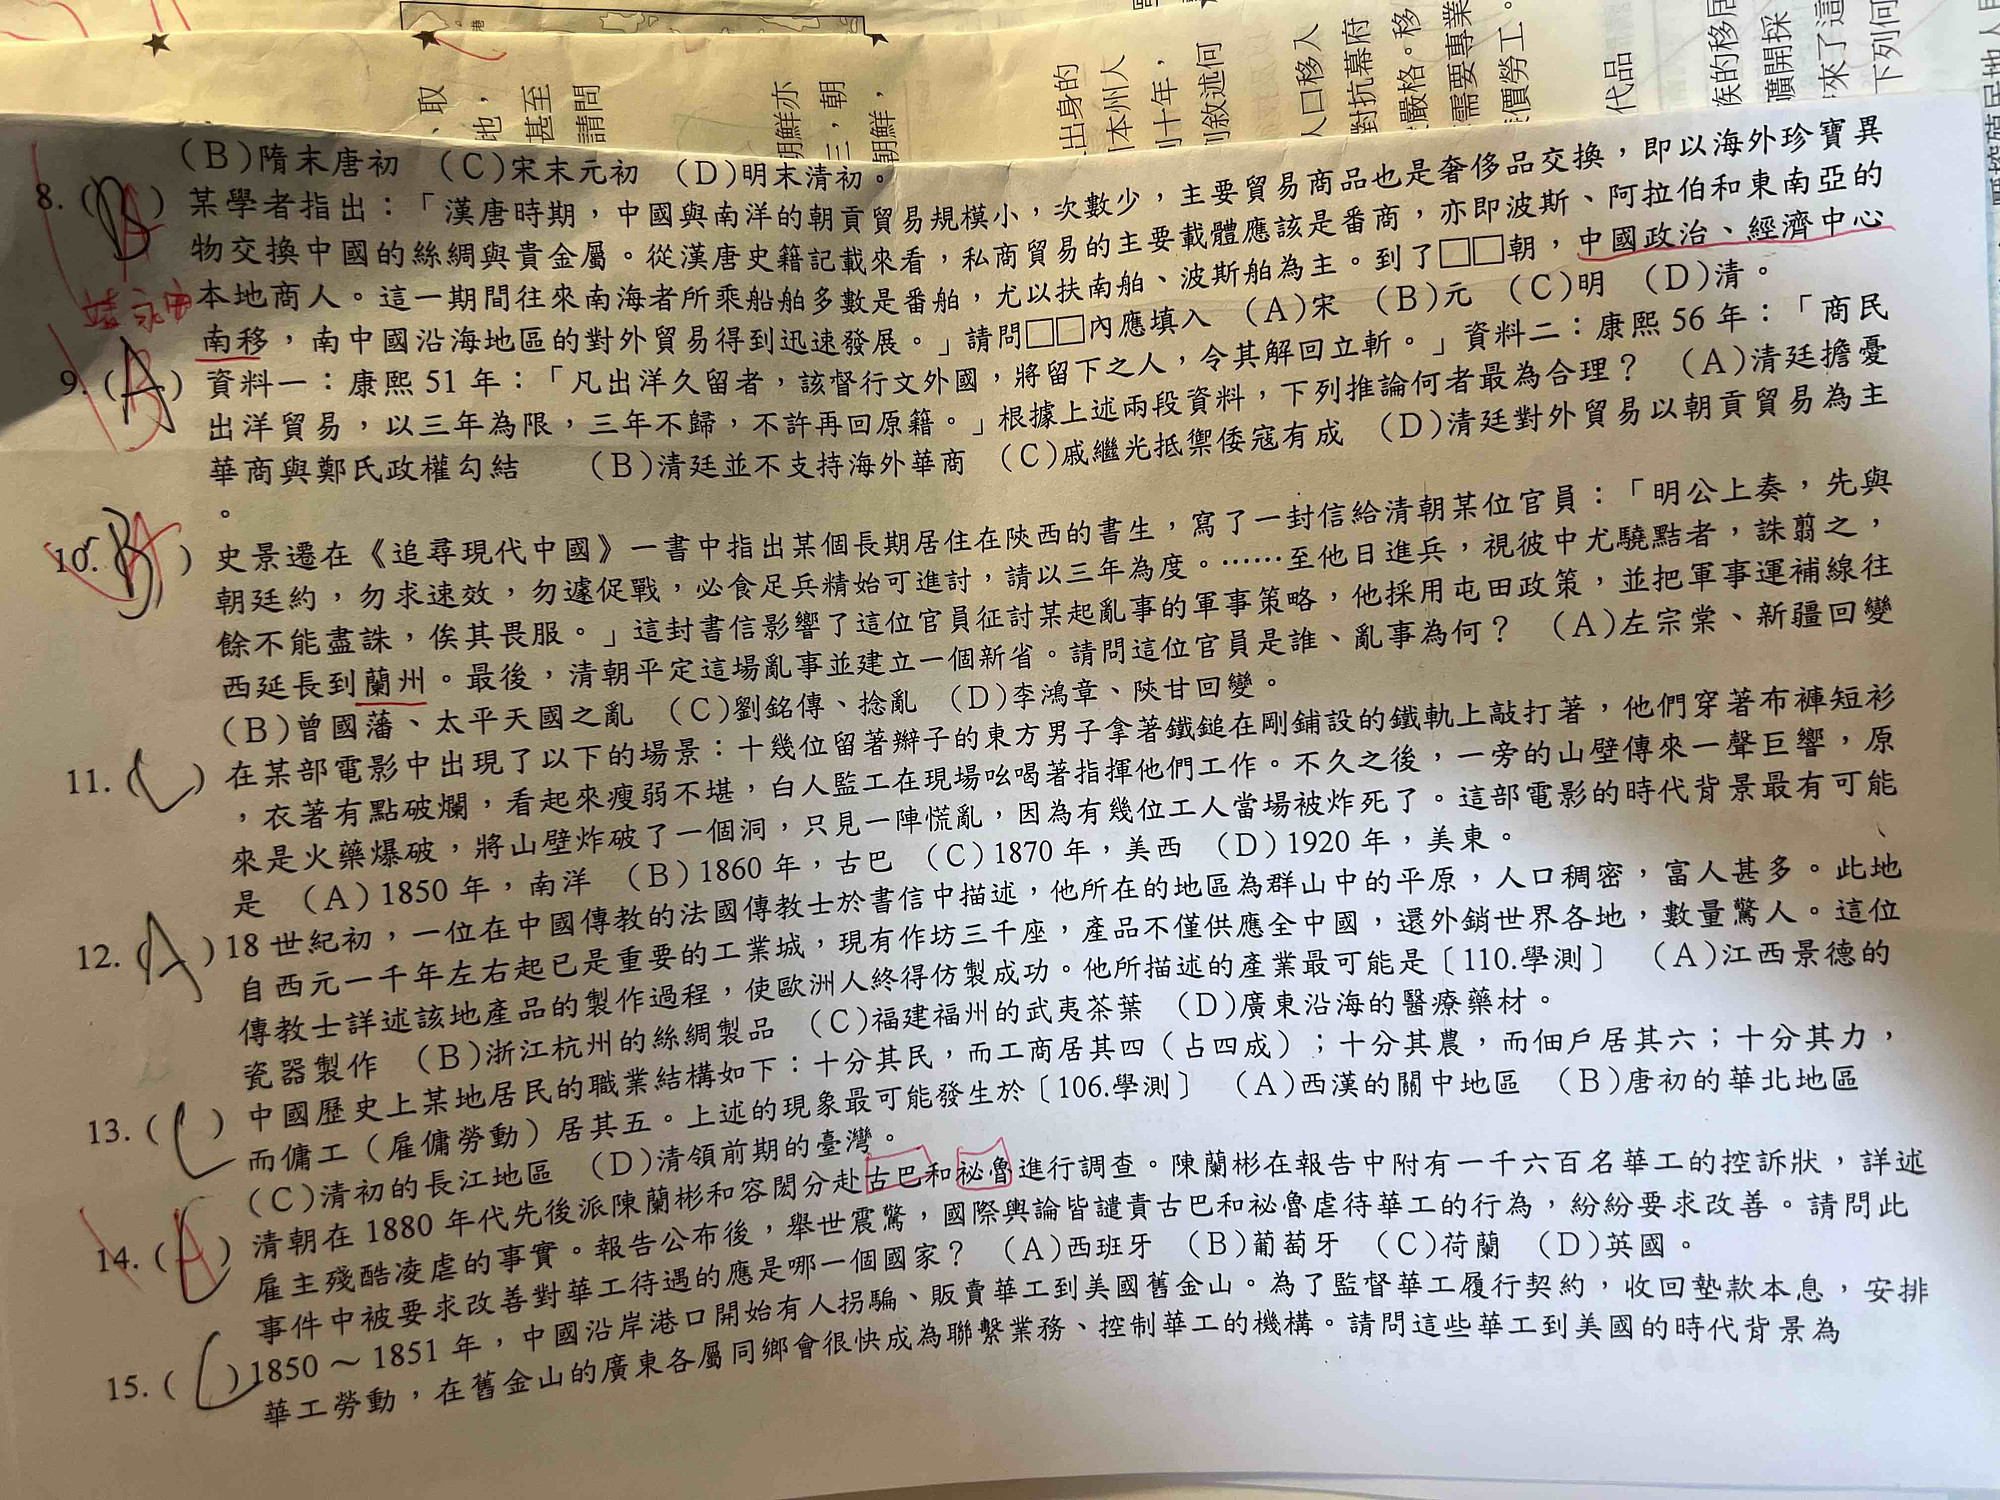 、取
地，
甚至
請問
朝鮮亦
三，朝
朝鮮，
出身的
本州人
十年，
敘述何
人口移入
對抗幕府
嚴格。移
需要專業
價勞工。
代品
族的移居
礦開採
來了這
下列何
(B)隋末唐初 (C)宋末元初 (D)明末清初。
8. (B) A 某學者指出：「漢唐時期，中國與南洋的朝貢貿易規模小，次數少，主要貿易商品也是奢侈品交換，即以海外珍寶異
物交換中國的絲綢與貴金屬。從漢唐史籍記載來看，私商貿易的主要載體應該是番商，亦即波斯、阿拉伯和東南亞的
本地商人。這一期間往來南海者所乘船舶多數是番舶，尤以扶南舶、波斯舶為主。到了□□朝，中國政治、經濟中心
南移，南中國沿海地區的對外貿易得到迅速發展。」請問□□內應填入 (A)宋 (B)元 (C)明 (D)清。
9. (A) B 資料一：康熙 51 年：「凡出洋久留者，該督行文外國，將留下之人，令其解回立斬。」資料二：康熙 56 年：「商民
出洋貿易，以三年為限，三年不歸，不許再回原籍。」根據上述兩段資料，下列推論何者最為合理？ (A)清廷擔憂
華商與鄭氏政權勾結 (B)清廷並不支持海外華商 (C)戚繼光抵禦倭寇有成 (D)清廷對外貿易以朝貢貿易為主
。
10. (B) A 史景遷在《追尋現代中國》一書中指出某個長期居住在陝西的書生，寫了一封信給清朝某位官員：「明公上奏，先與
朝廷約，勿求速效，勿遽促戰，必食足兵精始可進討，請以三年為度。……至他日進兵，視彼中尤驍黠者，誅翦之，
餘不能盡誅，俟其畏服。」這封書信影響了這位官員征討某起亂事的軍事策略，他採用屯田政策，並把軍事運補線往
西延長到蘭州。最後，清朝平定這場亂事並建立一個新省。請問這位官員是誰、亂事為何？ (A)左宗棠、新疆回變
(B)曾國藩、太平天國之亂 (C)劉銘傳、捻亂 (D)李鴻章、陝甘回變。
11. (C) 在某部電影中出現了以下的場景：十幾位留著辮子的東方男子拿著鐵鎚在剛鋪設的鐵軌上敲打著，他們穿著布褲短衫
，衣著有點破爛，看起來瘦弱不堪，白人監工在現場吆喝著指揮他們工作。不久之後，一旁的山壁傳來一聲巨響，原
來是火藥爆破，將山壁炸破了一個洞，只見一陣慌亂，因為有幾位工人當場被炸死了。這部電影的時代背景最有可能
是 (A)1850 年，南洋 (B)1860 年，古巴 (C)1870 年，美西 (D)1920 年，美東。
12. (A) 18 世紀初，一位在中國傳教的法國傳教士於書信中描述，他所在的地區為群山中的平原，人口稠密，富人甚多。此地
自西元一千年左右起已是重要的工業城，現有作坊三千座，產品不僅供應全中國，還外銷世界各地，數量驚人。這位
傳教士詳述該地產品的製作過程，使歐洲人終得仿製成功。他所描述的產業最可能是〔110.學測〕 (A)江西景德的
瓷器製作 (B)浙江杭州的絲綢製品 (C)福建福州的武夷茶葉 (D)廣東沿海的醫療藥材。
13. (C) 中國歷史上某地居民的職業結構如下：十分其民，而工商居其四（占四成）；十分其農，而佃戶居其六；十分其力，
而傭工（雇傭勞動）居其五。上述的現象最可能發生於〔106.學測〕 (A)西漢的關中地區 (B)唐初的華北地區
(C)清初的長江地區 (D)清領前期的臺灣。
14. (C) A 清朝在 1880 年代先後派陳蘭彬和容閎分赴古巴和祕魯進行調查。陳蘭彬在報告中附有一千六百名華工的控訴狀，詳述
雇主殘酷凌虐的事實。報告公布後，舉世震驚，國際輿論皆譴責古巴和祕魯虐待華工的行為，紛紛要求改善。請問此
事件中被要求改善對華工待遇的應是哪一個國家？ (A)西班牙 (B)葡萄牙 (C)荷蘭 (D)英國。
15. (C) 1850～1851 年，中國沿岸港口開始有人拐騙、販賣華工到美國舊金山。為了監督華工履行契約，收回墊款本息，安排
華工勞動，在舊金山的廣東各屬同鄉會很快成為聯繫業務、控制華工的機構。請問這些華工到美國的時代背景為